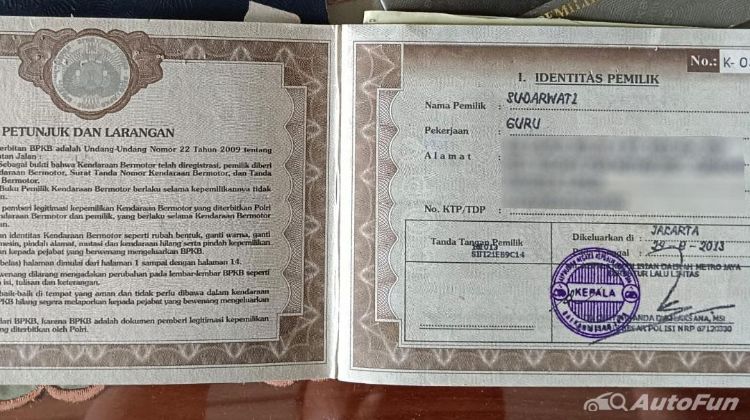 PETUNJUK DAN LARANGAN
erbitan BPKB adalah Undang-Undang Nomor 22 Tahun 2009 tentang
utan Jalan :
Sebagai bukti bahwa Kendaraan Bermotor telah diregistrasi, pemilik diberi
ndaraan Bermotor, Surat Tanda Nomor Kendaraan Bermotor, dan Tanda
Bermotor.
Buku Pemilik Kendaraan Bermotor berlaku selama kepemilikannya tidak
pemberi legitimasi kepemilikan Kendaraan Bermotor yang diterbitkan Polri
ndaraan Bermotor dan pemilik, yang berlaku selama Kendaraan Bermotor
n identitas Kendaraan Bermotor seperti rubah bentuk, ganti warna, ganti
mesin, pindah alamat, mutasi dan kendaraan hilang serta pindah kepemilikan
kepada pejabat yang berwenang mengeluarkan BPKB.
belas) halaman dimulai dari halaman 1 sampai dengan halaman 14.
wenang dilarang mengadakan perubahan pada lembar-lembar BPKB seperti
isi, tulisan dan keterangan.
baik-baik di tempat yang aman dan tidak perlu dibawa dalam kendaraan
PKB hilang segera melaporkan kepada pejabat yang berwenang mengeluarkan
dari BPKB, karena BPKB adalah dokumen pemberi legitimasi kepemilikan
ng diterbitkan oleh Polri.
No.: K-0
I. IDENTITAS PEMILIK
Nama Pemilik : SUDARWATI
Pekerjaan : GURU
Alamat :
No. KTP/TDP :
Tanda Tangan Pemilik
Dikeluarkan di : JAKARTA
2013
METRO JAYA
LALU LINTAS
KEPALA
MSI
POLISI NRP 67120330
AutoFun